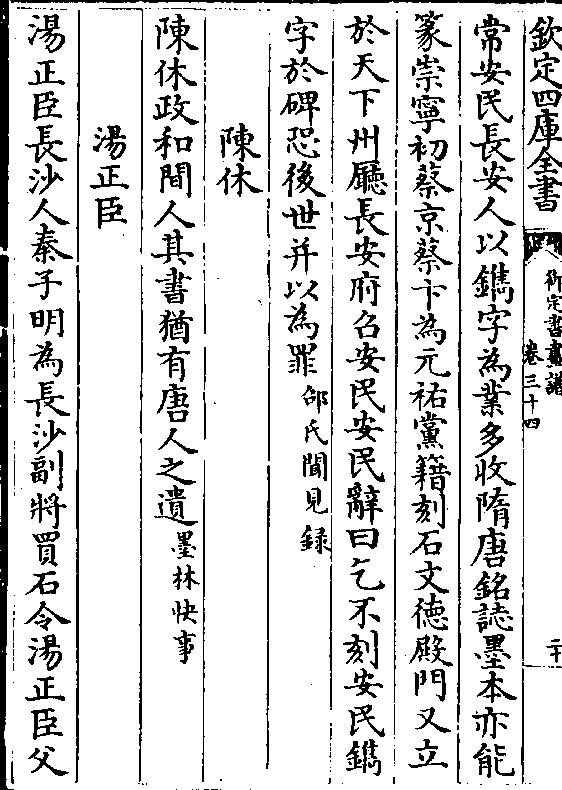 欽定四庫全書
御定書畫譜
卷三十四
二十
常安民長安人以鐫字為業多收隋唐銘誌墨本亦能
篆崇寧初蔡京蔡卞為元祐黨籍刻石文徳殿門又立
於天下州廳長安府召安民安民辭曰乞不刻安民鐫
字於碑恐後世并以為罪邵氏聞見録
陳休
陳休政和間人其書猶有唐人之遺墨林快事
湯正臣
湯正臣長沙人秦子明為長沙副將買石令湯正臣父